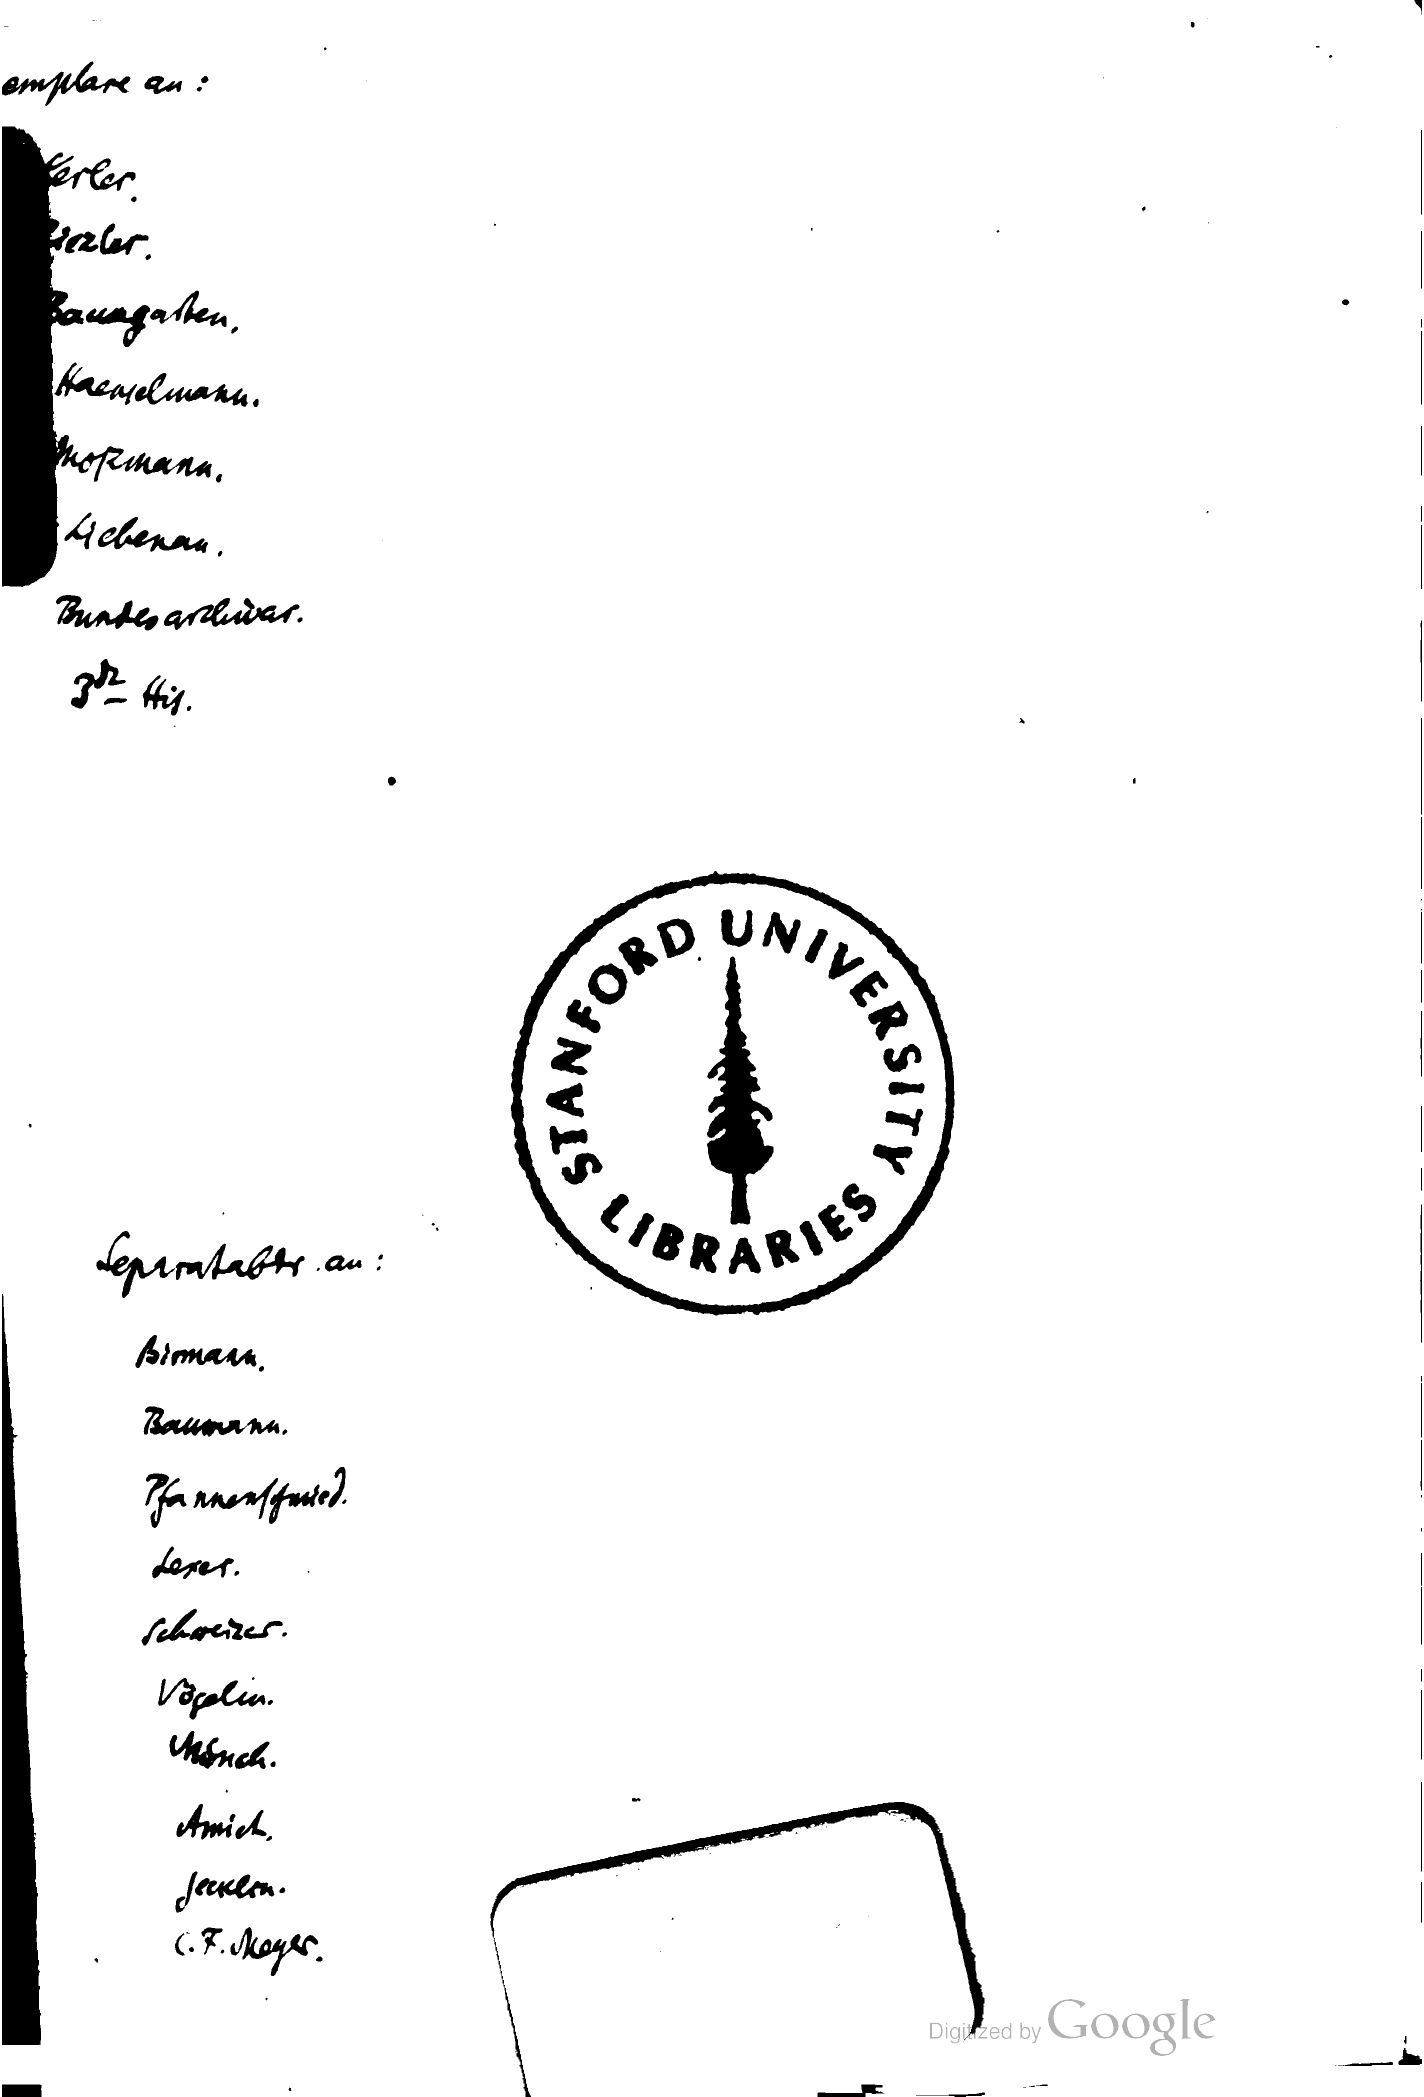 emplare an:
Baumgarten.
Haenselmann.
Liebenau.
Bundesarchivar.
His.
STANFORD UNIVERSITY
LIBRARIES
Separatabdr. an:
Birmann.
Baumann.
Pfannenschmied.
Lexer.
Schweizer.
Vögelin.
Mönch.
Amiet.
Jecklin.
C. F. Meyer.
Digitized by Google